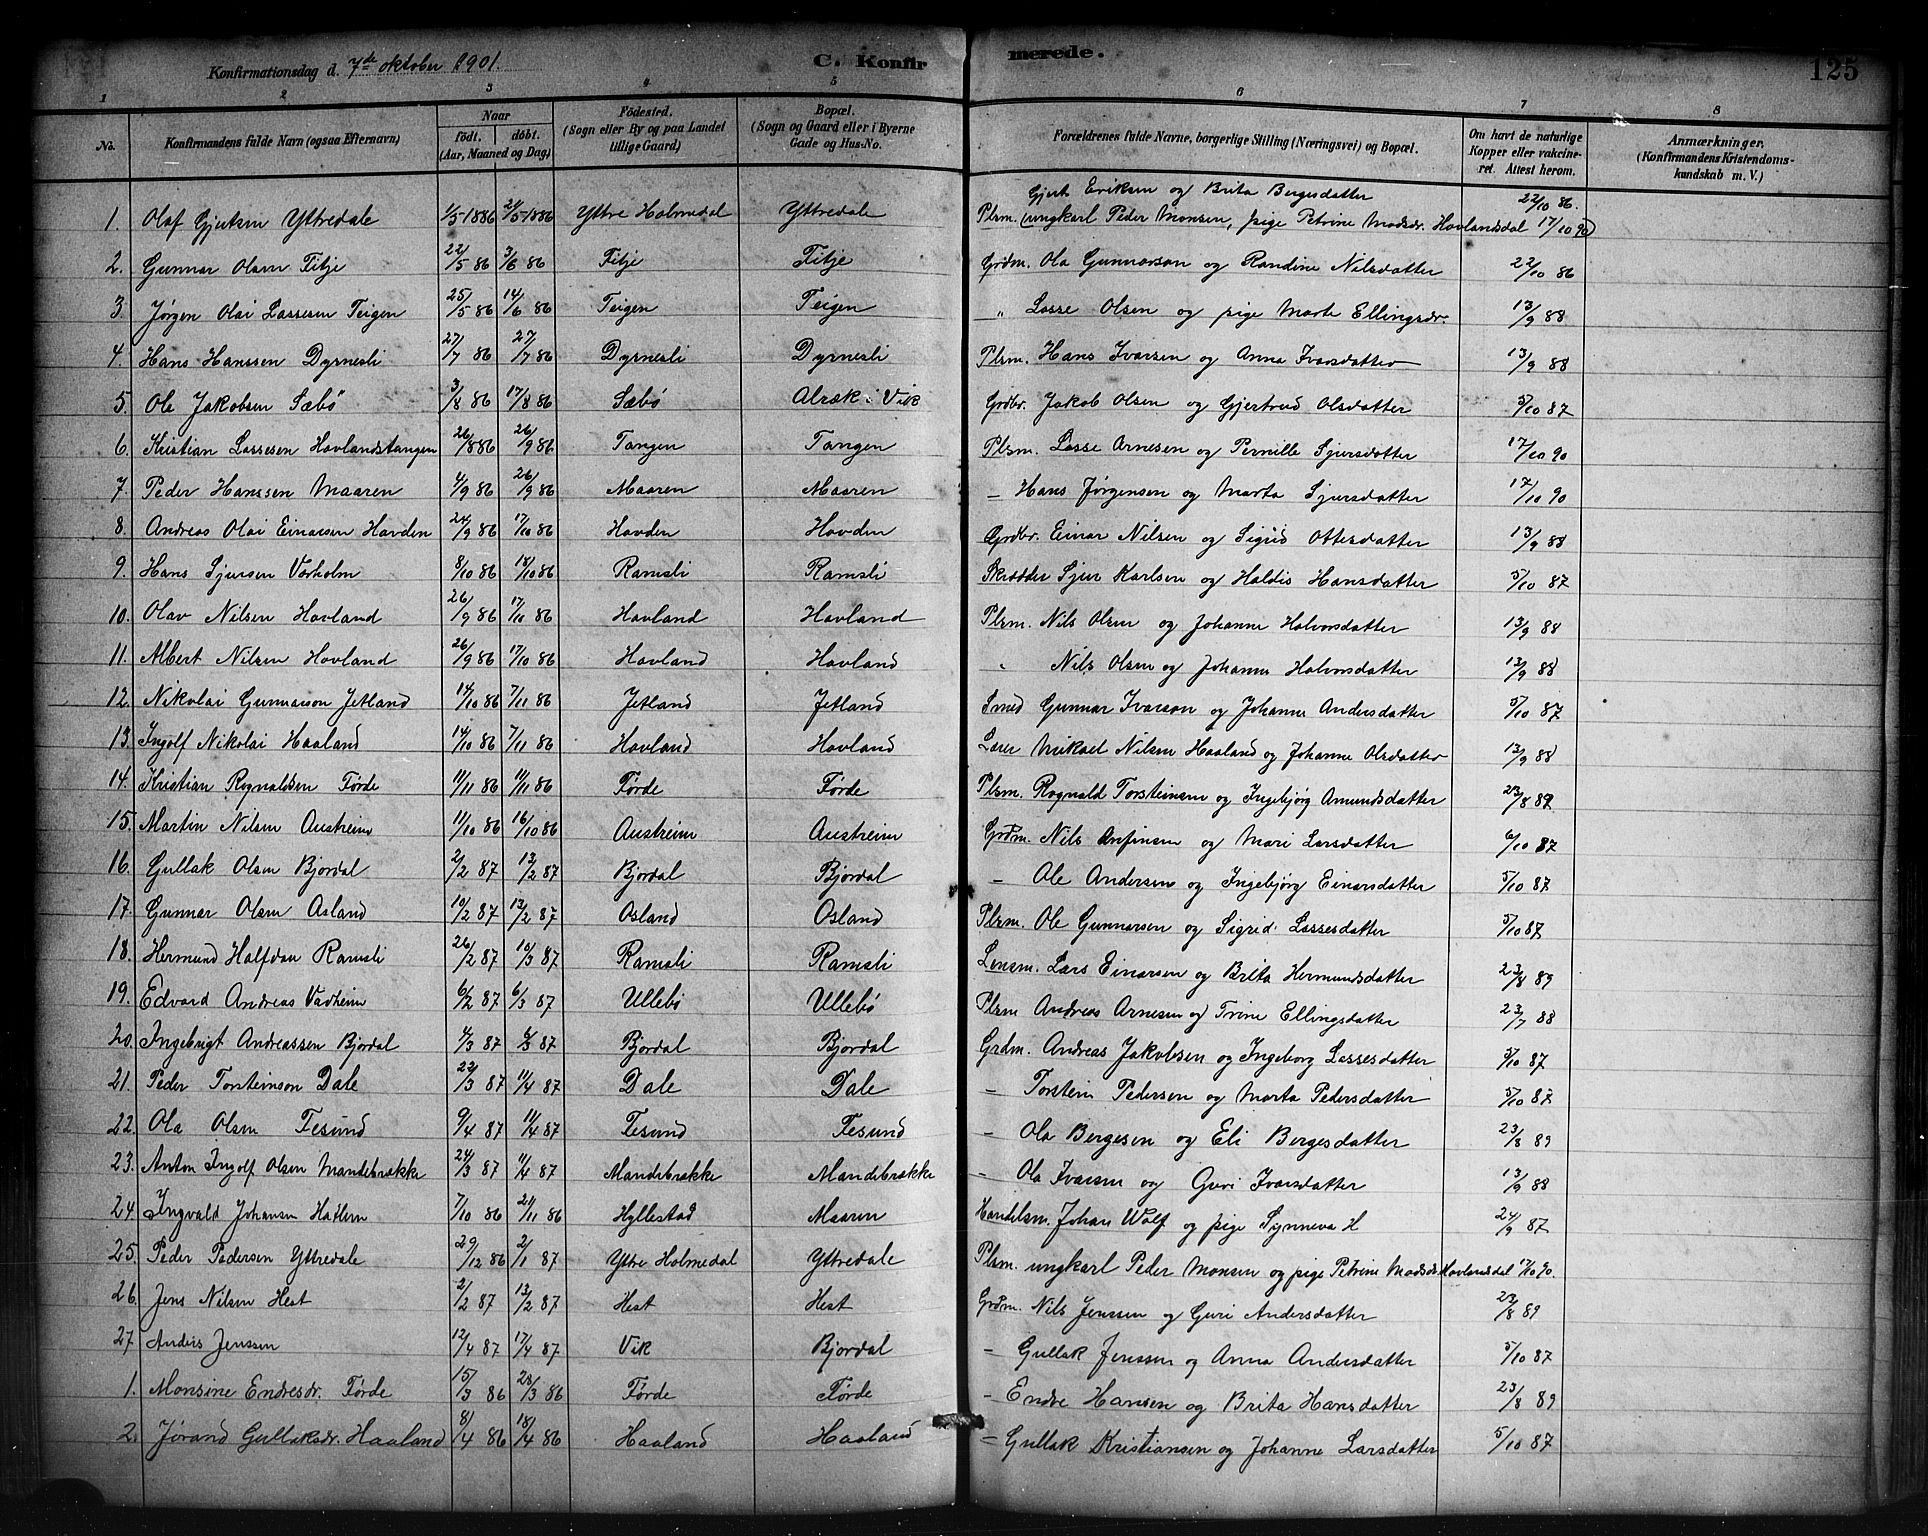 Konfirmationsdag d. 7de oktober 1901.
C. Konfirmerede.
125
1 2 3 4 5 6 7 8
No. Konfirmandens fulde Navn (ogsaa Efternavn) Naar født. døbt. (Aar, Maaned og Dag) Fødested. (Sogn eller By og paa Landet tillige Gaard) Bopæl. (Sogn og Gaard eller i Byerne Gade og Hus-No. Forældrenes fulde Navne, borgerlige Stilling (Næringsvei) og Bopæl. Om havt de naturlige Kopper eller vakcineret. Attest herom. Anmærkninger. (Konfirmandens Kristendomskundskab m. V.)
Gjert Eriksen og Brita Bergesdatter 22/10 86.
1. Olaf Gjertsen Yttredale 1/5 1886 2/5 1886 Yttre Holmedal Yttredale Plsm. (ungkarl Peder Monsen, pige Petrine Madsdr. Hovlandsdal 17/10 90)
2. Gunnar Olsen Fitje 22/5 86 3/6 86 Fitje Fitje Grdm. Ola Gunnarson og Randine Nilsdatter 22/10 86
3. Jørgen Olai Lassesen Teigen 25/5 86 14/6 86 Teigen Teigen " Lasse Olsen og pige Marte Ellingsdr. 13/9 88
4. Hans Hanssen Dyrnesli 27/7 86 27/7 86 Dyrnesli Dyrnesli Plsm. Hans Ivarsen og Anna Ivarsdatter 13/9 88
5. Ole Jakobsen Sæbö 3/8 86 17/8 86 Sæbø Alræk i Vik Grdbr. Jakob Olsen og Gjertrud Olsdatter 5/10 87
6. Kristian Lassesen Hovlandstangen 26/8 86 26/9 86 Tangen Tangen Plsm. Lasse Arnesen og Pernille Sjursdatter 17/10 90
7. Peder Hanssen Maaren 4/9 86 26/9 86 Maaren Maaren – Hans Jørgensen og Marta Sjursdatter 17/10 90
8. Andreas Olai Einarsen Havden 24/9 86 17/10 86 Havden Hovden Grdbr. Einar Nilsen og Sigrid Ottesdatter 13/9 88
9. Hans Sjursen Varholm 8/10 86 18/10 86 Ramsli Ramsli Skrædder Sjur Karlsen og Haldis Hansdatter 5/10 87
10. Olav Nilsen Hovland 26/9 86 17/10 86 Hovland Hovland Plsm. Nils Olsen og Johanne Halvorsdatter 13/9 88
11. Albert Nilsen Hovland 26/9 86 17/10 86 Hovland Hovland " Nils Olsen og Johanne Halvorsdatter 13/9 88
12. Nikolai Gunnarson Jetland 14/10 86 7/11 86 Jetland Jetland Smed Gunnar Ivarson og Johanne Andersdatter 5/10 87
13. Ingolf Nikolai Haaland 14/10 86 7/11 86 Hovland Hovland Lærer Mikael Nilsen Haaland og Johanne Olsdatter 13/9 88
14. Kristian Rognaldsen Førde 11/11 86 11/11 86 Førde Førde Plsm. Rognald Torsteinsen og Ingebjørg Amundsdatter 23/8 89
15. Martin Nilsen Austreim 11/10 86 16/10 86 Austreim Austreim Grdm. Nils Anfinsen og Mari Larsdatter 6/10 87
16. Gullak Olsen Bjordal 2/2 87 13/2 87 Bjordal Bjordal – Ole Andersen og Ingebjørg Einarsdatter 5/10 87
17. Gunnar Olsen Osland 10/2 87 13/2 87 Osland Osland Plsm. Ole Gunnarsen og Sigrid Lassesdatter 5/10 87
18. Hermund Halfdan Ramsli 26/2 87 10/3 87 Ramsli Ramsli Lensm. Lars Einarsen og Brita Hermundsdatter 23/8 89
19. Edvard Andreas Vadheim 6/2 87 6/3 87 Ullebø Ullebø Plsm Andreas Arnesen og Trine Ellingsdatter 23/7 88
20. Ingebrigt Andreassen Bjordal 4/3 87 6/3 87 Bjordal Bjordal Grdm. Andreas Jakobsen og Ingeborg Lassesdatter 5/10 87
21. Peder Torsteinson Dale 22/3 87 11/4 87 Dale Dale – Torstein Pedersen og Marta Pedersdatter 5/10 87
22. Ola Olsen Tesund 9/4 87 11/4 87 Tesund Tesund – Ola Bergesen og Eli Bergesdatter 23/8 89
23. Anton Ingolf Olsen Mandebrække 24/3 87 11/4 87 Mandebrække Mandebrække – Ola Ivarsen og Guri Ivarsdatter 13/9 88
24. Ingvald Johansen Hatlem 7/10 86 21/11 86 Hyllestad Maaren Handelsm. Johan Wolf og pige Synneva H 24/9 87
25. Peder Pedersen Yttredale 29/12 86 2/1 87 Ytre Holmedal Yttredale Plsm. ungkarl Peder Monsen og pige Petrine Madsdr. Hovlandsdal 17/10 90.
26. Jens Nilsen Hest 2/2 87 13/2 87 Hest Hest Grdm. Nils Jenssen og Guri Andersdatter 23/8 89
27. Anders Jenssen 12/4 87 17/4 87 Vik Bjordal – Gullak Jenssen og Anna Andersdatter 5/10 87
1. Monsine Endresdr. Førde 15/3 86 28/3 86 Førde Førde – Endre Hansen og Brita Hansdatter 23/8 89
2. Jørand Gullaksdr. Haaland 8/4 86 18/4 86 Haaland Haaland – Gullak Kristiansen og Johanne Larsdatter 5/10 87